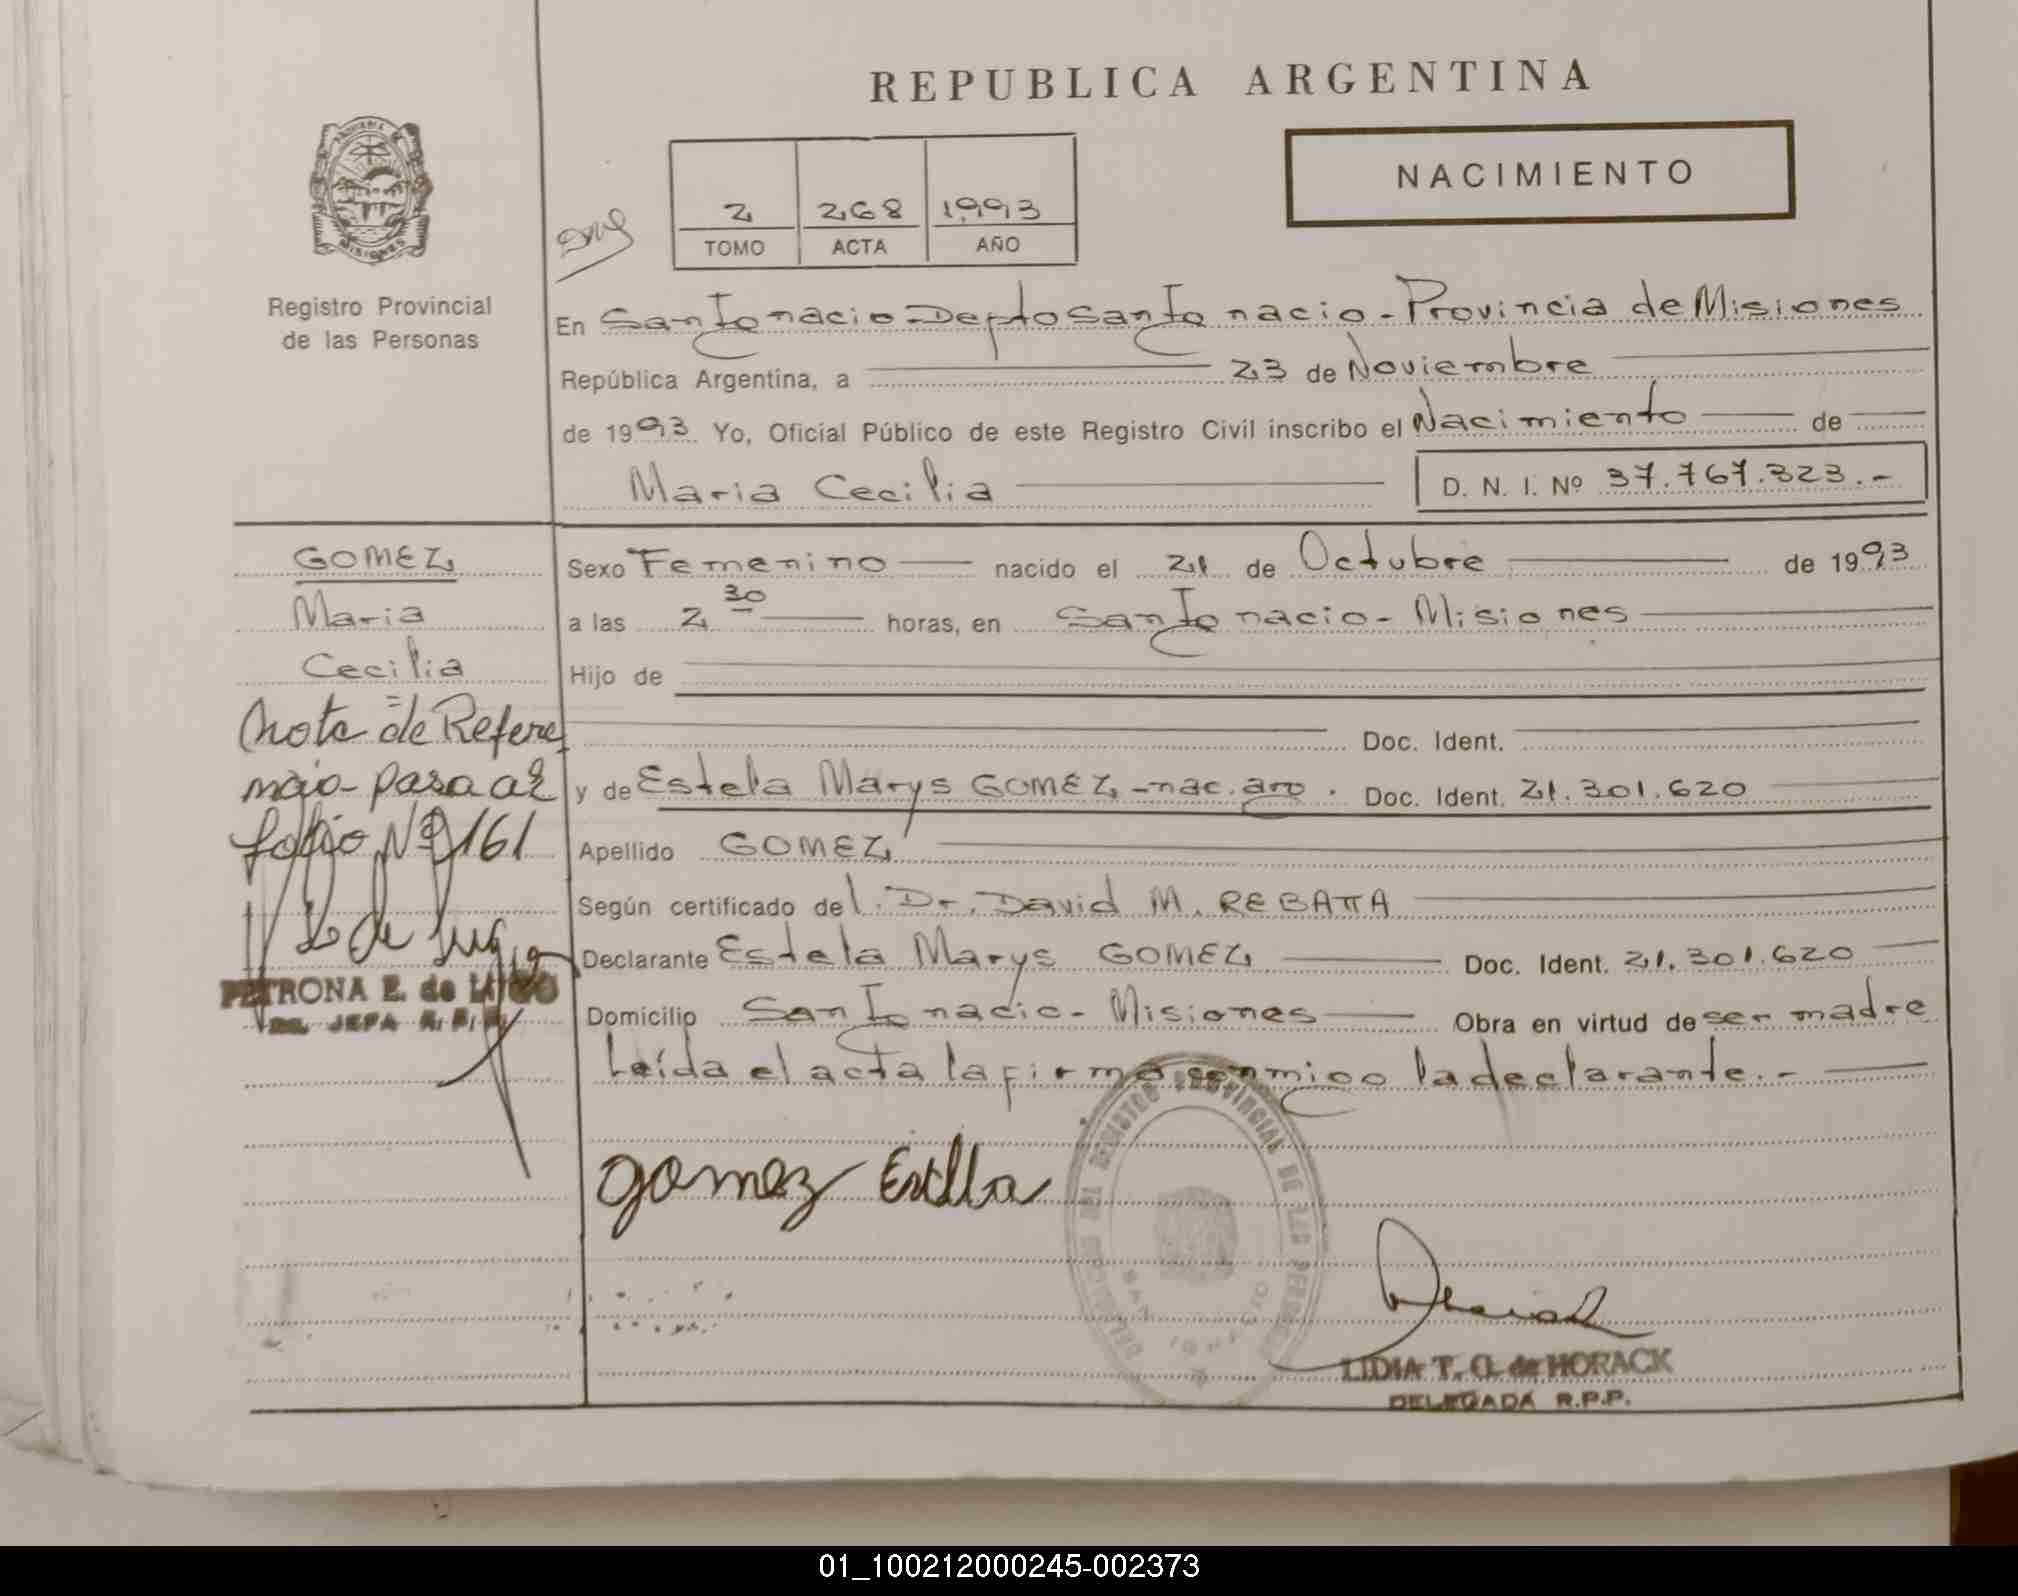 REPUBLICA ARGENTINA
NACIMIENTO
2 268 1993
TOMO ACTA AÑO
Registro Provincial
de las Personas
En San Ignacio-Depto San Ignacio-Provincia de Misiones
República Argentina, a 23 de Noviembre
de 1993 Yo, Oficial Público de este Registro Civil inscribo el Nacimiento de
Maria Cecilia D. N. I. Nº 37.767.323.-
GOMEZ
Maria
Cecilia
Nota de Refere
ncia- para al
folio Nº 161
PETRONA E. de LUGO
JEFA R.P.P.
Sexo Femenino nacido el 21 de Octubre de 1993
a las 2 30 horas, en San Ignacio-Misiones
Hijo de
Doc. Ident.
y de Estela Marys GOMEZ-nac.arg. Doc. Ident. 21.301.620
Apellido GOMEZ
Según certificado del. Dr. David M. REBATTA
Declarante Estela Marys GOMEZ Doc. Ident. 21.301.620
Domicilio San Ignacio-Misiones Obra en virtud de ser madre
Leída el acta la firma conmigo la declarante.-
Gomez Estella
DEL REGISTRO PROVINCIAL DE LAS PERSONAS
SAN IGNACIO
LIDIA T. O. de HORACK
DELEGADA R.P.P.
01_100212000245-002373